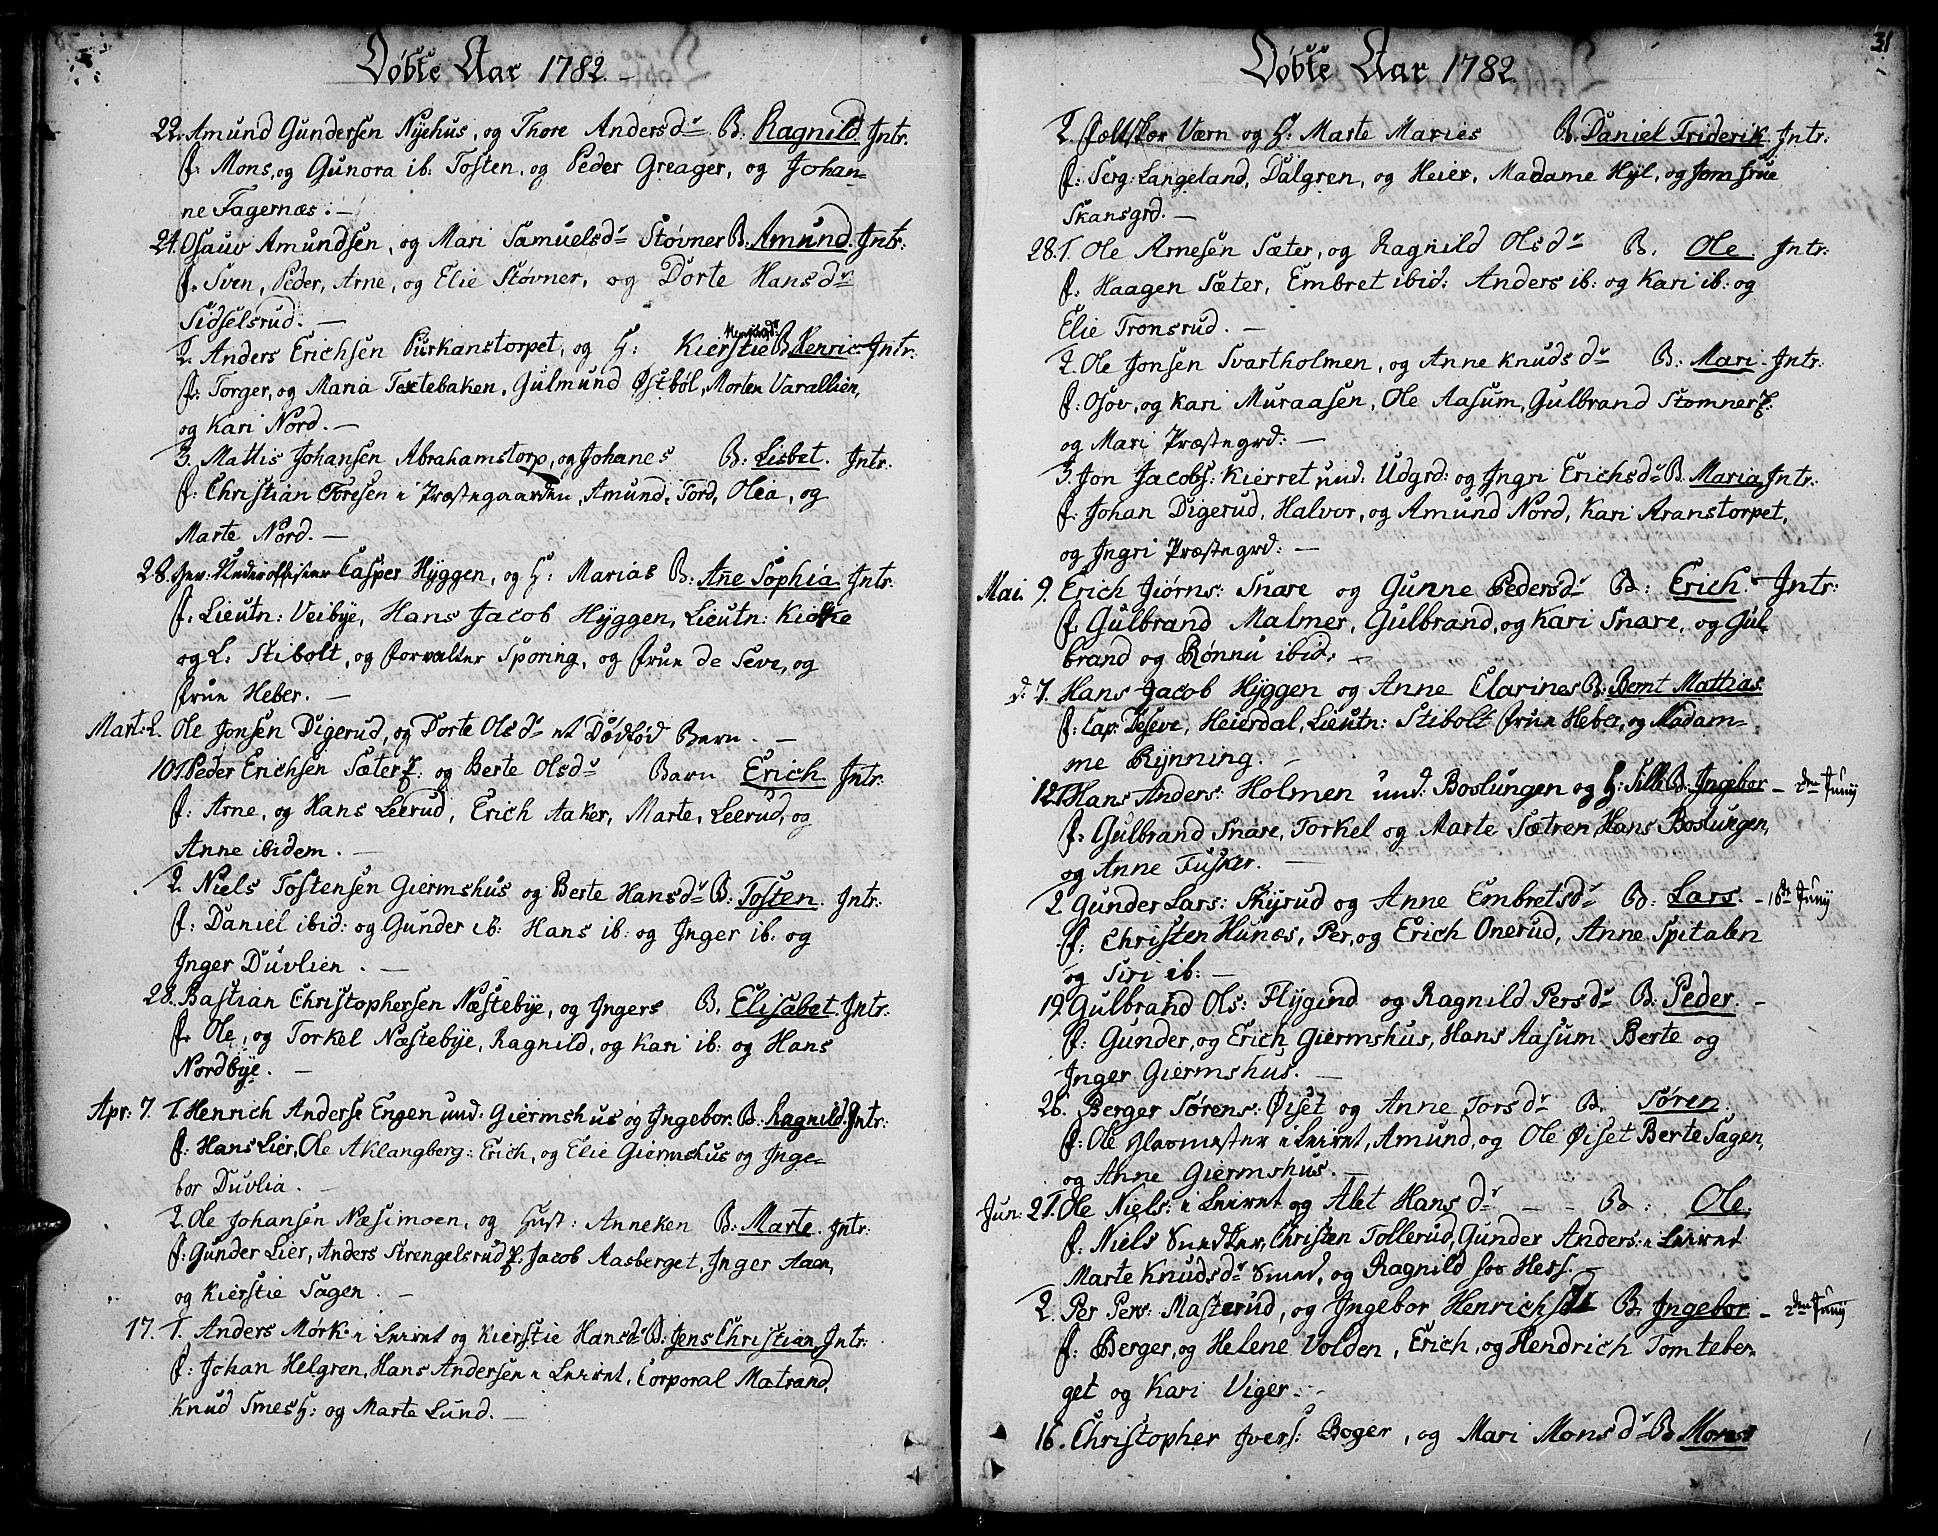 Døbte Aar 1782. -
22. Amund Gundersen Nyehus, og Thore Andersdr B: Ragnild. Intr.
f. Mons, og Gunora ib: Tosten, og Peder Greager, og Johan-
ne Fagernæs. -
24. Osauv Amundsen, og Mari Samuelsdr Støvner B. Amund. Intr:
f. Sven, Peder, Arne, og Elie Støvner, og Dorte Hansdr
Sidselsrud. -
2. Anders Erichsen Purkanstorpet, og H: Kierstie B. Henric. Intr.
f: Torger, og Maria Textebaken, Gulmund Østbøl, Morten Varallien,
og Kari Nord. -
3. Mattis Johansen Abrahamstorp, og Johanes B: Lisbet. Intr.
f: Christian Toresen i Præstegaarden, Amund, Tord, Olea, og
Marte Nord. -
28. Gev: Underofficeer Casper Hyggen, og H: Marias B: Anne Sophia. Intr.
f. Lieutn: Veibye, Hans Jacob Hyggen, Lieutn: Kiøtke
og L. Stibolt, og forvalter Sporing, og frue de Seve, og
frue Heber. -
Mart: 2. Ole Jonsen Digerud, og Dorte Olsdr et Dødfød Barn. -
10 1. Peder Erichsen Sæter f: og Berte Olsdr Barn Erich. Intr:
f: Arne, og Hans Leerud, Erich Aaker, Marte, Leerud, og
Anne ibidem. -
2. Niels Tostensen Giermshus og Berte Hansdr B: Tosten. Intr:
f: Daniel ibid: og Gunder ib: Hans ib: og Inger ib. og
Inger Duvlien. -
28. Bastian Christophersen Næstebye, og Ingers B. Elisabet. Intr:
f. Ole, og Torkel Næstebye, Ragnild, og Kari ib: og Hans
Nordbye. -
Apr: 7. 1. Henrich Anderse Engen und: Giermshus og Ingebor. B: Ragnild. Intr:
f: Hans Lier, Ole Aklangberg: Erich, og Elie Giermshus og Inge-
bor Duvlia. -
2. Ole Johansen Næsimoen, og Hust: Anneken B: Marte. Intr:
f: Gunder Lier, Anders Strengelsrud f: Jacob Aasberget, Inger Aaen,
og Kierstie Sagen. -
17. 1. Anders Mørk i Leiret og Kierstie Hansd: B: Jens Christian Intr:
f: Johan Helgren, Hans Andersen i Leiret, Corporal Matrand,
Knud Smes H: og Marte Lund. -
31
Døbte Aar 1782
2. FeltskærVærn og H: Marte Maries B. Daniel Friderik. Intr:
f: Serg: Langeland, Dalgren, og Heier, Madame Hyl, og Jomfrue
Skansgrd. -
28. 1. Ole Arnesen Sæter, og Ragnild Olsdr B. Ole. Intr:
f: Haagen Sæter, Embret ibid: Anders ib: og Kari ib: og
Elie Tronsrud. -
2. Ole Jonsen Svartholmen, og Anne Knudsdr B: Mari. Intr:
f: Osov, og Kari Muraasen, Ole Aasum, Gulbrand Stomner f:
og Mari Præstegrd: -
3. Jon Jacobs: Kierret und: Udgrd: og Ingri Erichsdr B. Maria. Intr:
f: Johan Digerud, Halvor, og Amund Nord, Kari Aranstorpet,
og Ingri Præstegrd: -
Mai. 9. Erich Jiørns: Snare og Gunne Pedersdr B: Erich. Intr:
f: Gulbrand Malmer, Gulbrand, og Kari Snare, og Gul-
brand og Rønnu ibid: -
d. 7. Hans Jacob Hyggen og Anne Clarines B: Bernt Mattias
f: Cap: Deseve, Heierdal, Lieutn: Stibolt frue Heber, og Madam-
me Rynning. -
12. 1. Hans Anders: Holmen und: Boslungen og H: Sille B: Ingebor - 2den Junij
f: Gulbrand Snare, Torkel og Marte Sætren, Hans Boslungen,
og Anne Fusker. -
2 Gunder Lars: Skyrud og Anne Embretsdr B: Lars. - 16de Junij
f: Christen Hunæs, Per, og Erich Onerud, Anne Spitalen
og Siri ib: -
19. Gulbrand Ols: Flygind og Ragnild Persdr B: Peder. -
f: Gunder, og Erich Giermshus, Hans Aasum Berte og
Inger Giermshus. -
26. Berger Sørens: Øiset og Anne Torsdr B. Søren.
f: Ole Glasmester i Leiret, Amund, og Ole Øiset Berte Sagen,
og Anne Giermshus. -
Jun: 2. 1. Ole Niels: i Leiret og Alet Hansdr - - B: Ole.
f: Niels Snedker, Christen Tollerud, Gunder Anders: i Leiret
Marte Knudsdr Smed, og Ragnild hos Hess. -
2. Per Pers: Masterud, og Ingebor Henrichsdr B. Ingebor - 2den Junij
f: Berger, og Helene Volden, Erich, og Hendrich Tomteber-
get og Kari Viger. -
16. Christopher Ivers: Boger, og Mari Monsdr B Mons